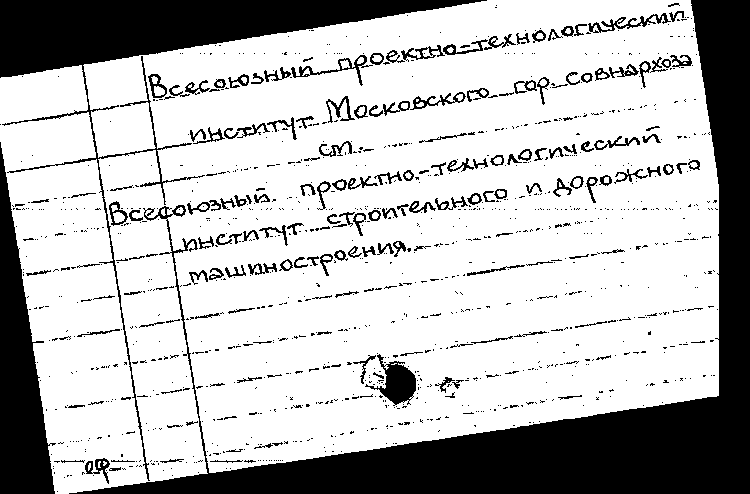 Всесоюзный проектно-технологический
институт Московского гор. совнархоза
см.
Всесоюзный проектно-технологический
институт строительного и дорожного
машиностроения.